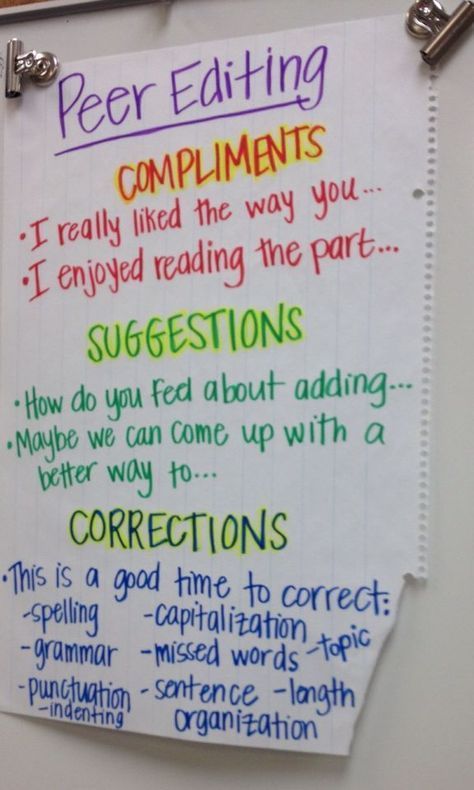 Peer Editing
COMPLIMENTS
• I really liked the way you...
• I enjoyed reading the part...
SUGGESTIONS
• How do you feel about adding...
• Maybe we can come up with a
better way to...
CORRECTIONS
• This is a good time to correct:
-spelling -capitalization
-grammar -missed words -topic
-punctuation -sentence -length
-indenting organization